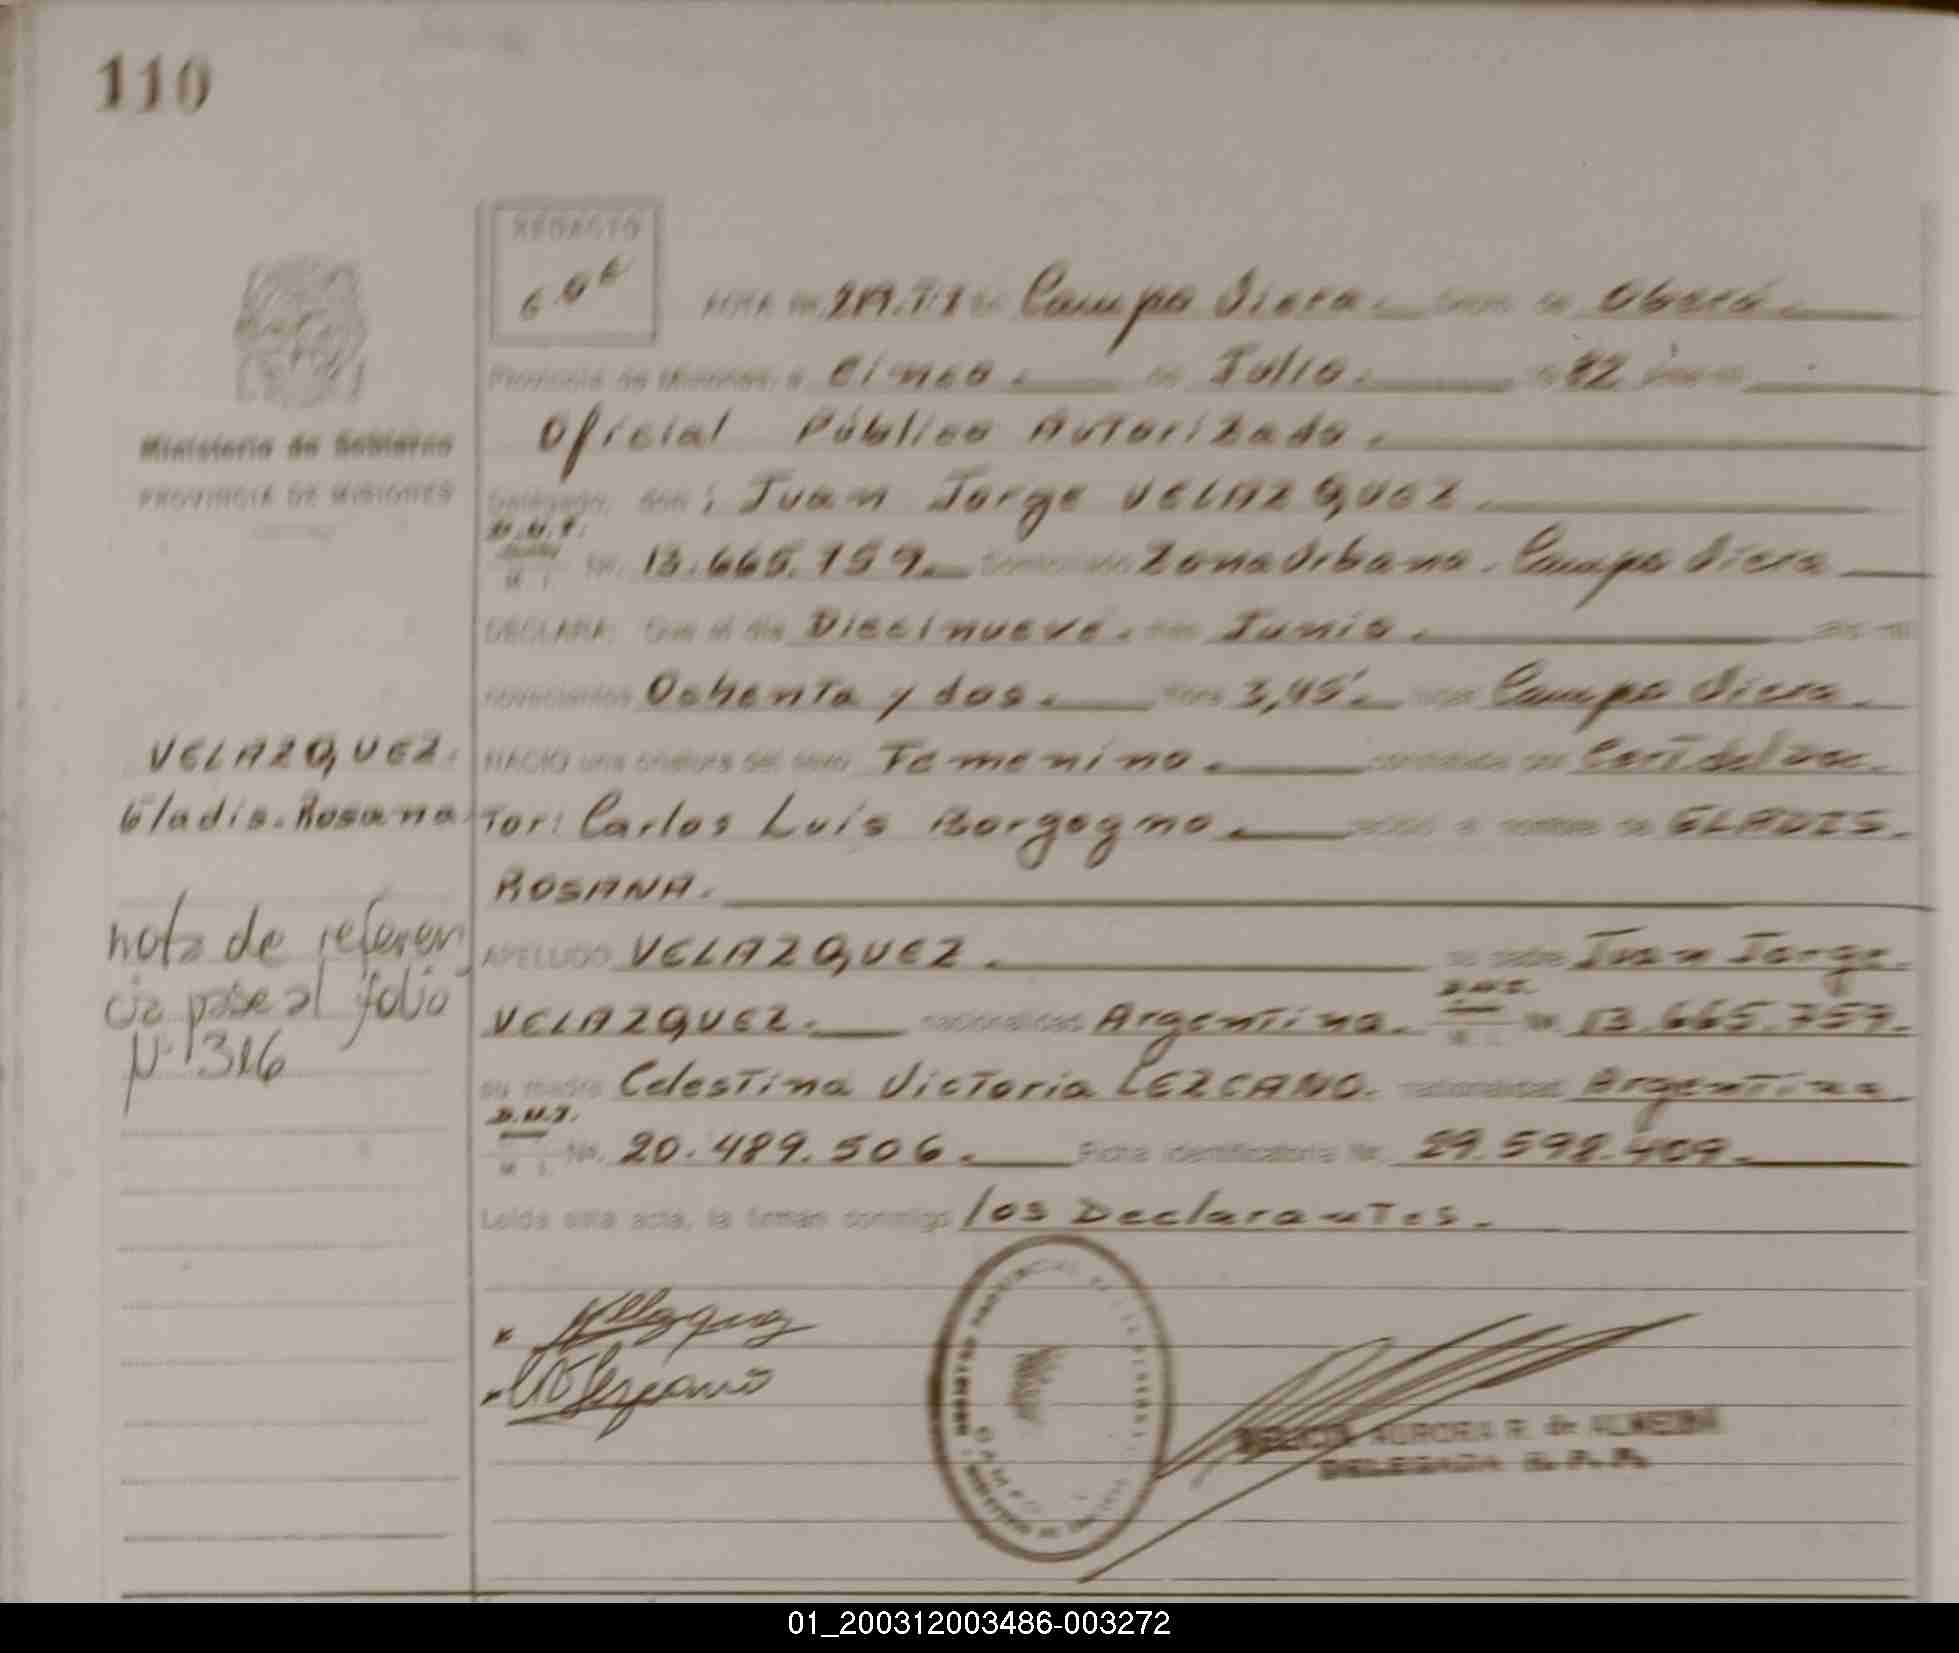 110
REDACTO
ACTA Nº 219.T:1 en Campo Viera. Dpto. de Oberá.
Provincia de Misiones, a Cinco. de Julio. de 82 ante mí
Oficial Público Autorizado.
Ministerio de Gobierno
PROVINCIA DE MISIONES
Delegado, don: Juan Jorge VELAZQUEZ.
D.N.I.
M. I. Nº. 13.665.759. Domiciliado Zona Urbana. Campo Viera
DECLARA: Que el día Diecinueve. mes Junio. año mil
novecientos Ochenta y dos. hora 3,45'. lugar Campo Viera.
VELAZQUEZ. NACIO una criatura del sexo Femenino. constatado por Cert del Doc
Gladis. Rosana. Tor: Carlos Luis Borgogno. recibió el nombre de GLADIS.
ROSANA.
nota de referen
cia pase al folio
Nº 316
APELLIDO VELAZQUEZ. su padre Juan Jorge.
VELAZQUEZ. nacionalidad Argentina. D.N.I. M. I. Nº 13.665.759.
su madre Celestina Victoria LEZCANO. nacionalidad Argentina
D.N.I.
M. I. Nº. 20.489.506. Ficha identificatoria Nº. 29.598.409.
Leída esta acta, la firman conmigo los Declarantes.
Velazquez
Lezcano
REGISTRO PROVINCIAL DE LAS PERSONAS
CAMPO
AURORA R. de ALMEIDA
DELEGADA R.P.P.
01_200312003486-003272